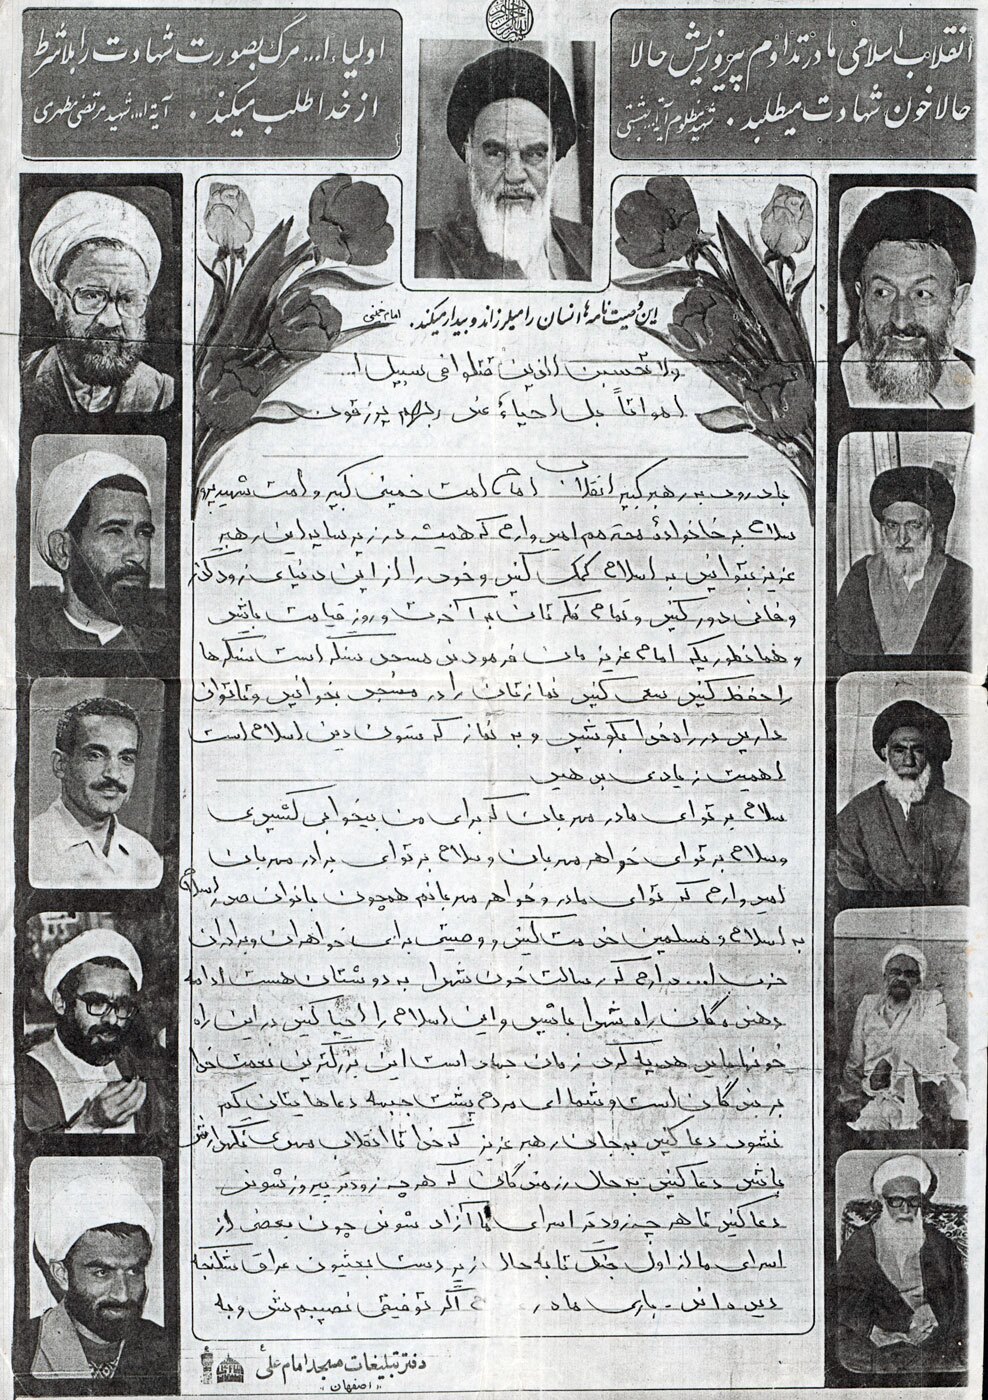 انقلاب اسلامی ما در تداوم پیروزیش حالا
حالا خون شهادت میطلبد. شهید مظلوم آیة... بهشتی
اولیاء ا... مرگ بصورت شهادت را بلاشرط
از خدا طلب میکند. آیة ا... شهید مرتضی مطهری
این وصیت نامه‌ها انسان را میلرزاند و بیدار میکند. امام خمینی
ولا تحسبن الذین قتلوا فی سبیل ا...
امواتاً بل احیاءٌ عند ربهم یرزقون
با درود به رهبر کبیر انقلاب امام امت خمینی کبیر و امت شهید پرور
سلام به خانوادهٔ محترمم امیدوارم که همیشه در زیر سایه این رهبر
عزیز بتوانید به اسلام کمک کنید و خود را از این دنیای زودگذر
و فانی دور کنید و تمام فکرتان به آخرت و روز قیامت باشد
و همانطوریکه امام عزیزمان فرمودند مسجد سنگر است سنگرها
را حفظ کنید سعی کنید نمازتان را در مسجد بخوانید و تا توان
دارید در راه خدا بکوشید و به نماز که ستون دین اسلام است
اهمیت زیادی بدهید
سلام بر تو ای مادر مهربان که برای من بیخوابی کشیدی
و سلام بر تو ای خواهر مهربان و سلام بر تو ای برادر مهربان
امیدوارم که تو ای مادر و خواهر مهربانم همچون بانوان صدر اسلام
به اسلام و مسلمین خدمت کنید و وصیتی برای خواهران و برادران
حزب ا... دارم که رسالت خون شهدا به دوشتان هست ادامه
دهنده گان راه شهدا باشید و این اسلام را احیا کنید در این راه
خونها باید هدیه کرد زمان جهاد است این بزرگترین نعمت خدا
بر بندگان است و شما ای مردم پشت جبهه دعاهایتان کم
نشود دعا کنید به جان رهبر عزیز که خدا تا انقلاب مهدی نگهدارش
باشد دعا کنید به حال رزمندگان که هرچه زودتر پیروز شوند
دعا کنید تا هر چه زودتر اسرای ما آزاد شوند چون بعضی از
اسرای ما از اول جنگ تا به حال زیر دست بعثیون عراق شکنجه
دیده‌اند - باری مادر اگر توفیقی نصیبم شد و به
دفتر تبلیغات مسجد امام علی
«اصفهان»